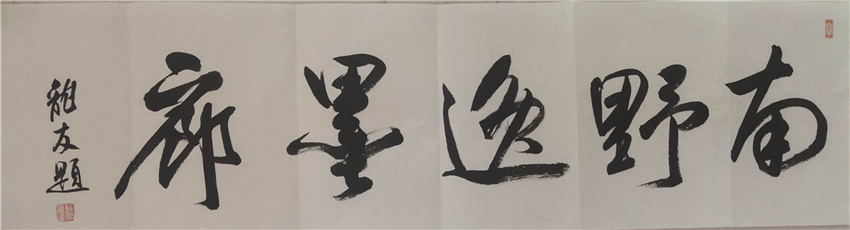 南野逸墨廊
龍友題